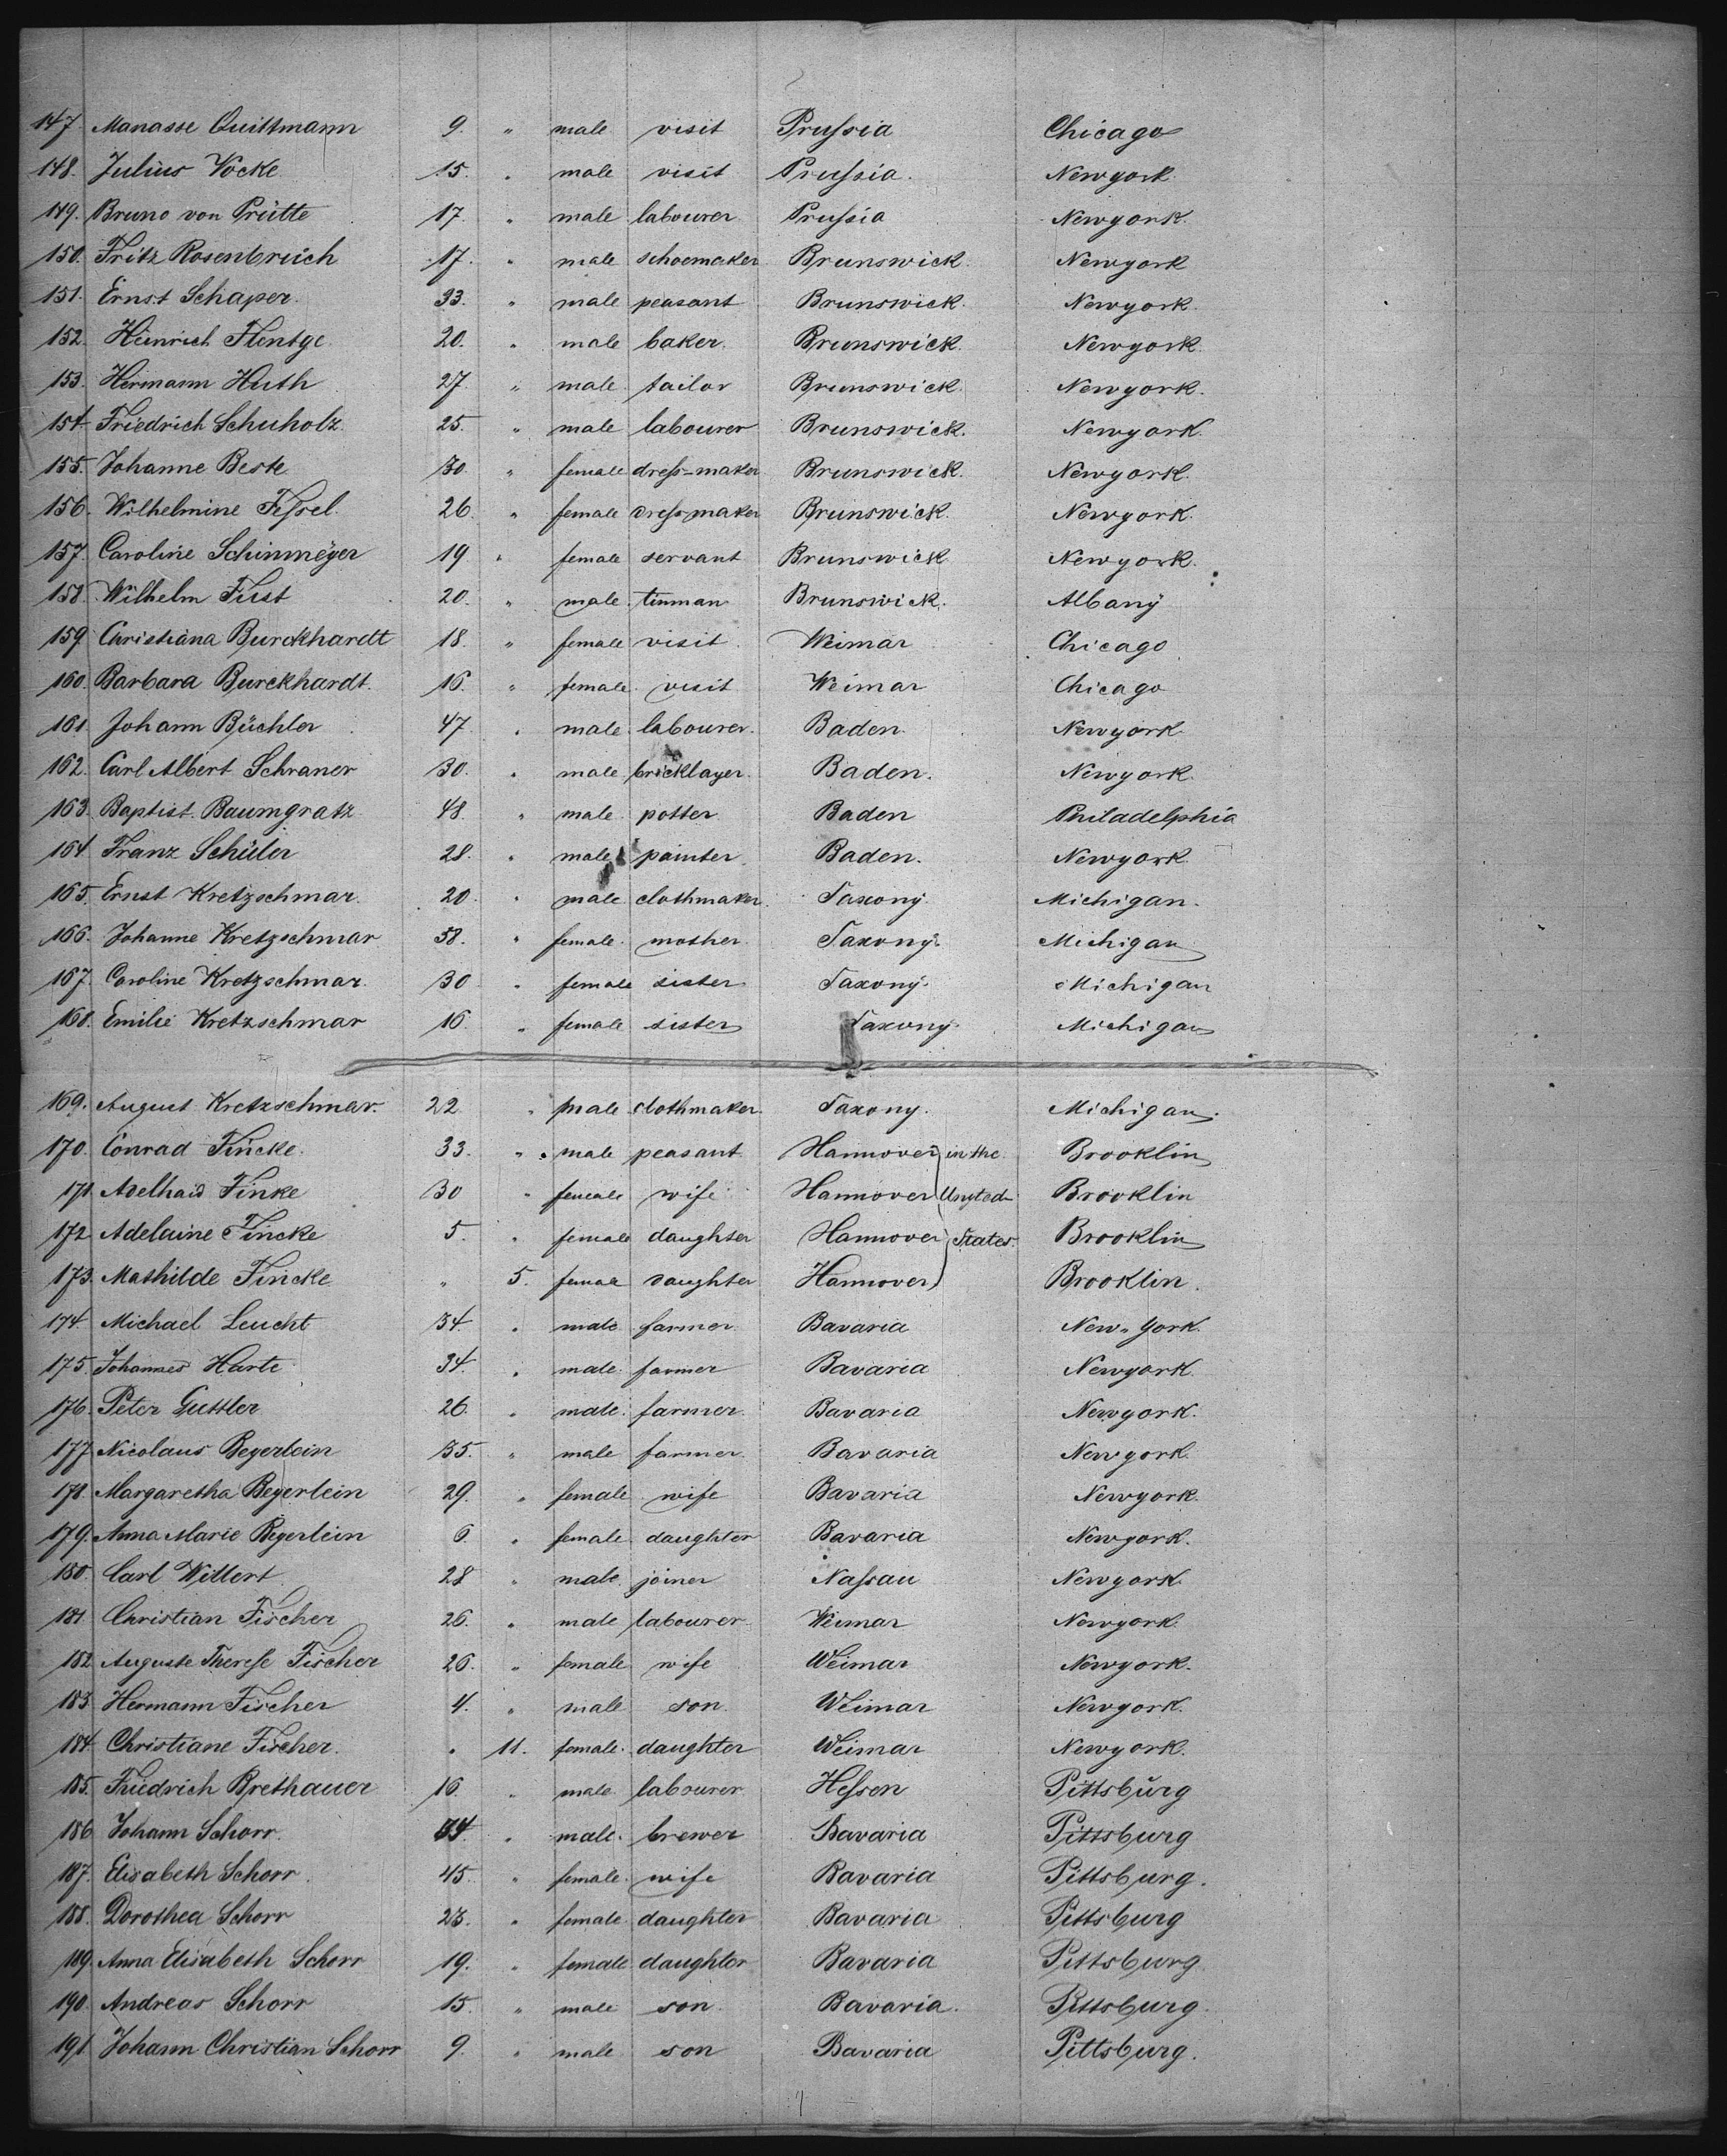 147. Manasse Quittmann 9. " male visit Prussia Chicago
148. Julius Vocke 15. " male visit Prussia. Newyork.
149. Bruno von Prütte 17. " male labourer Prussia Newyork.
150. Fritz Rosenbruch 17. " male schoemaker Brunswick. Newyork
151. Ernst Schaper. 33. " male peasant Brunswick. Newyork.
152. Heinrich Flentge 20. " male baker. Brunswick. Newyork.
153. Hermann Huth 27. " male tailor Brunswick. Newyork.
154. Friedrich Schuholz. 25. " male labourer Brunswick. Newyork.
155. Johanne Beste 30. " female dress-maker Brunswick. Newyork.
156. Wilhelmine Fessel. 26. " female dress-maker Brunswick. Newyork.
157. Caroline Schinmeyer 19 " female servant Brunswick Newyork.
158. Wilhelm Fust 20. " male tinman Brunswick. Albany
159. Christiana Burckhardt 18. " female visit Weimar Chicago
160. Barbara Burckhardt. 16. " female visit Weimar Chicago
161. Johann Büchler 47. " male labourer. Baden. Newyork.
162. Carl Albert Schraner 30. " male bricklayer. Baden. Newyork.
163. Baptist Baumgratz 48. " male potter Baden Philadelphia
164. Franz Schüler 28. " male painter. Baden. Newyork.
165. Ernst Kretzschmar. 20. " male clothmaker. Saxony. Michigan.
166. Johanne Kretzschmar 58. " female mother. Saxony. Michigan
167. Caroline Kretzschmar. 30 " female sister Saxony. Michigan
168. Emilie Kretzschmar 16. " female sister Saxony. Michigan
169. August Kretzschmar. 22 " male clothmaker. Saxony. Michigan.
170. Conrad Fincke. 33. " male peasant Hannover in the Brooklin
171. Adelhaid Finke 30 " female wife Hannover Unyted Brooklin
172. Adelaine Fincke 5. " female daughter Hannover States. Brooklin
173. Mathilde Fincke " 5. female daughter Hannover Brooklin.
174. Michael Leucht 34. " male farmer Bavaria New-York.
175. Johannes Harte 34. " male farmer Bavaria Newyork.
176. Peter Guttler 26. " male farmer Bavaria Newyork.
177. Nicolaus Beyerlein 35. " male farmer. Bavaria Newyork.
178. Margaretha Beyerlein 29. " female wife Bavaria Newyork.
179. Anna Marie Beyerlein 6. " female daughter Bavaria Newyork.
180. Carl Wittert 28 " male joiner Nassau Newyork.
181. Christian Fischer 26. " male labourer. Weimar Newyork.
182. Auguste Therese Fischer 26. " female wife Weimar Newyork.
183. Hermann Fischer 4. " male son. Weimar Newyork.
184. Christiane Fischer. " 11. female daughter Weimar Newyork.
185. Friedrich Brethauer 16. " male labourer Hessen Pittsburg
186. Johann Schorr. " male brewer Bavaria Pittsburg
187. Elisabeth Schorr. 45. " female wife Bavaria Pittsburg.
188. Dorothea Schorr 23. " female daughter Bavaria Pittsburg
189. Anna Elisabeth Schorr 19. " female daughter Bavaria Pittsburg.
190. Andreas Schorr 15. " male son Bavaria. Pittsburg.
191. Johann Christian Schorr 9. " male son Bavaria Pittsburg.